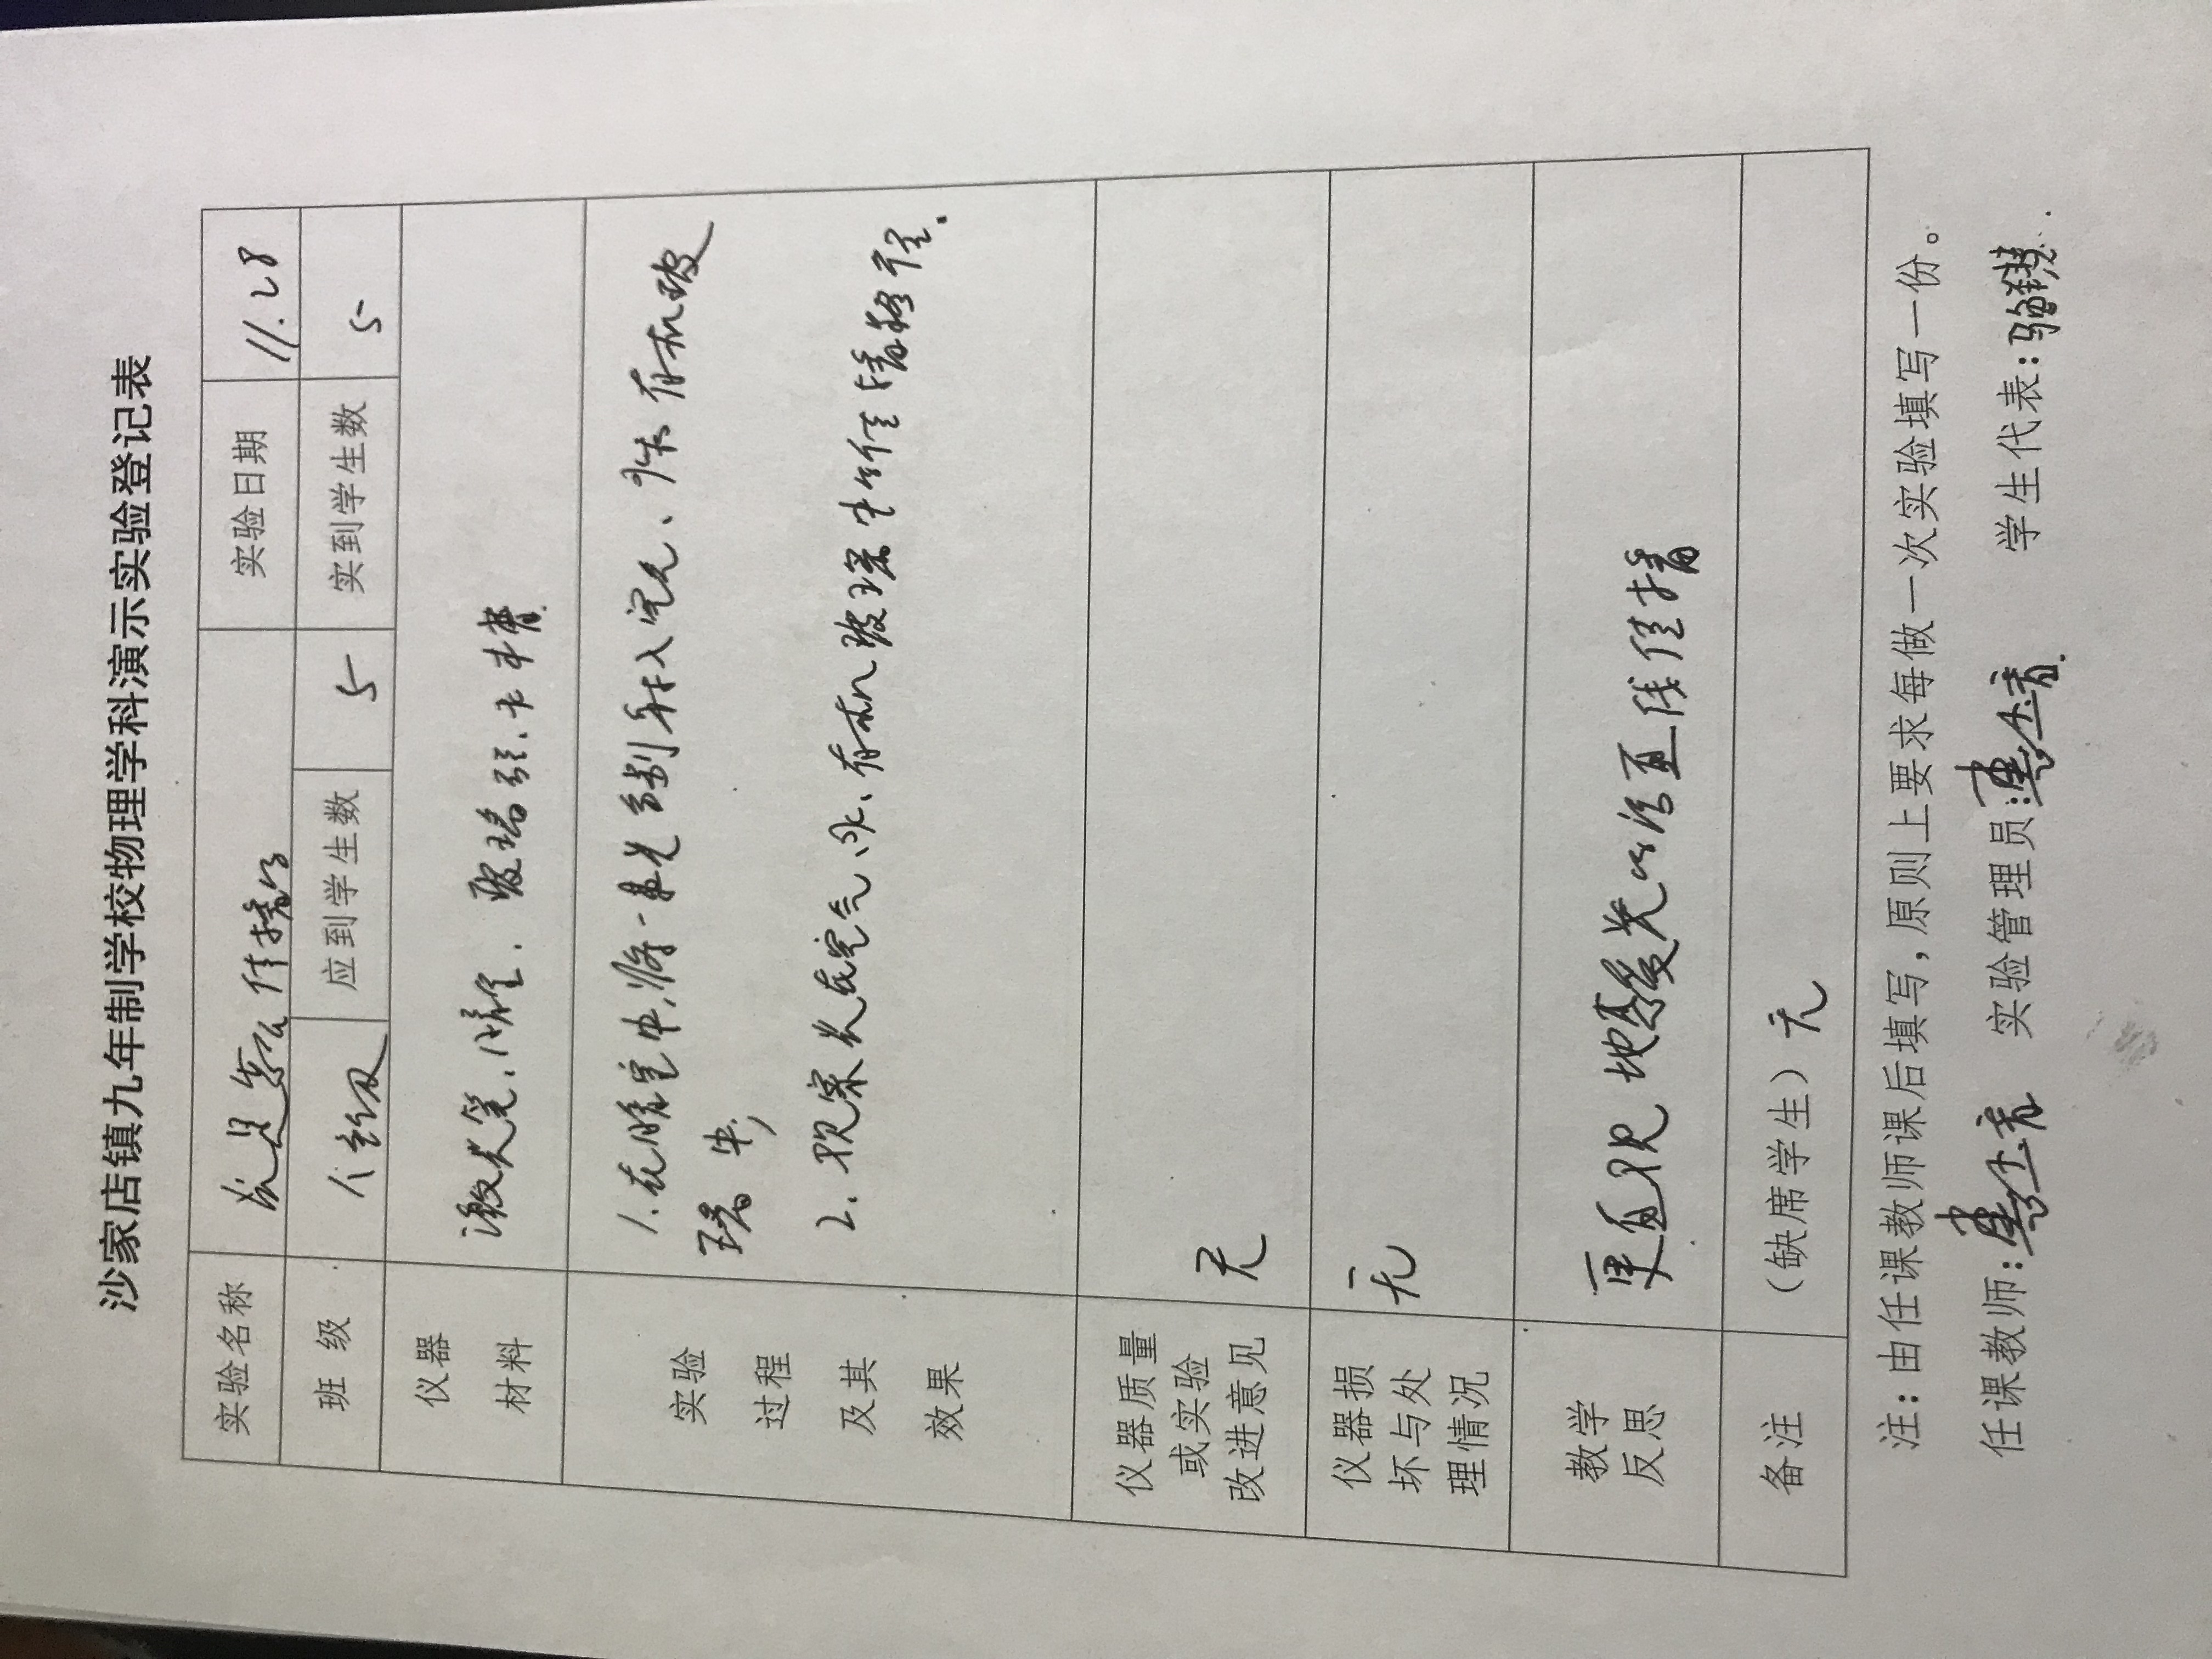 沙家店镇九年制学校物理学科演示实验登记表
实验名称 光是怎么传播的 实验日期 11.28
班 级 八年级 应到学生数 5 实到学生数 5
仪器
材料
激光笔、
实验
过程
及其
效果
1.在暗室中,将一束光分别射入空气、水、有机玻
璃中,
2.观察光在空气、水、有机玻璃中的传播路径.
仪器质量
或实验
改进意见
无
仪器损
坏与处
理情况
无
教学
反思
更直观地感受光的沿直线传播
备注
(缺席学生) 无
注:由任课教师课后填写,原则上要求每做一次实验填写一份。
任课教师: 实验管理员: 学生代表: